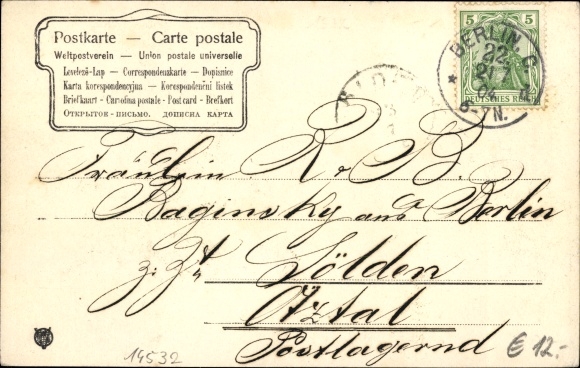 Postkarte — Carte postale
Weltpostverein — Union postale universelle
Levelező-Lap — Correspondenzkarte — Dopisnice
Karta korespondencyjna — Korespondenční listek
Briefkaart — Cartolina postale — Post card — Brefkort
ОТКРЫТОЕ-ПИСЬМО. ДОПИСНА КАРТА
5 5
DEUTSCHES REICH
BERLIN, C.
22.
04
8-9 N.
Fräulein R. v B.
Baginsky aus Berlin
z. Zt Sölden
Ötztal
Postlagernd
14532
€ 12.-